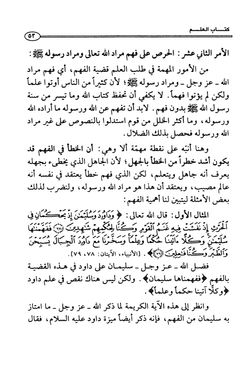 كتاب العلم
٥٣
الأمر الثاني عشر: الحرص على فهم مراد الله تعالى ومراد رسوله ﷺ:
من الأمور المهمة في طلب العلم قضية الفهم، أي فهم مراد
الله - عز وجل - ومراد رسوله ﷺ؛ لأن كثيراً من الناس أوتوا علماً
ولكن لم يؤتوا فهماً. لا يكفي أن تحفظ كتاب الله وما تيسر من سنة
رسول الله ﷺ بدون فهم. لابد أن تفهم عن الله ورسوله ما أراده الله
ورسوله، وما أكثر الخلل من قوم استدلوا بالنصوص على غير مراد
الله ورسوله فحصل بذلك الضلال.
وهنا أنبّه على نقطة مهمّة ألا وهي: أن الخطأ في الفهم قد
يكون أشد خطراً من الخطأ بالجهل؛ لأن الجاهل الذي يخطىء بجهله
يعرف أنه جاهل ويتعلم، لكن الذي فهم خطأ يعتقد في نفسه أنه
عالم مصيب، ويعتقد أن هذا هو مراد الله ورسوله، ولنضرب لذلك
بعض الأمثلة ليتبين لنا أهمية الفهم:
المثال الأول: قال الله تعالى: ﴿وَدَاوُدَ وَسُلَيْمَٰنَ إِذْ يَحْكُمَانِ فِي
ٱلْحَرْثِ إِذْ نَفَشَتْ فِيهِ غَنَمُ ٱلْقَوْمِ وَكُنَّا لِحُكْمِهِمْ شَٰهِدِينَ ٧٨ فَفَهَّمْنَٰهَا
سُلَيْمَٰنَ وَكُلًّا ءَاتَيْنَا حُكْمًا وَعِلْمًا وَسَخَّرْنَا مَعَ دَاوُدَ ٱلْجِبَالَ يُسَبِّحْنَ
وَٱلطَّيْرَ وَكُنَّا فَٰعِلِينَ ٧٩﴾ [الأنبياء، الآيتان: ٧٨، ٧٩].
فضل الله ـ عز وجل ـ سليمان على داود في هذه القضية
بالفهم ﴿ففهمناها سليمان﴾ ولكن ليس هناك نقص في علم داود
﴿وكلًا آتينا حكماً وعلماً﴾.
وانظر إلى هذه الآية الكريمة لما ذكر الله ـ عز وجل ـ ما امتاز
به سليمان من الفهم، فإنه ذكر أيضاً ميزة داود عليه السلام، فقال